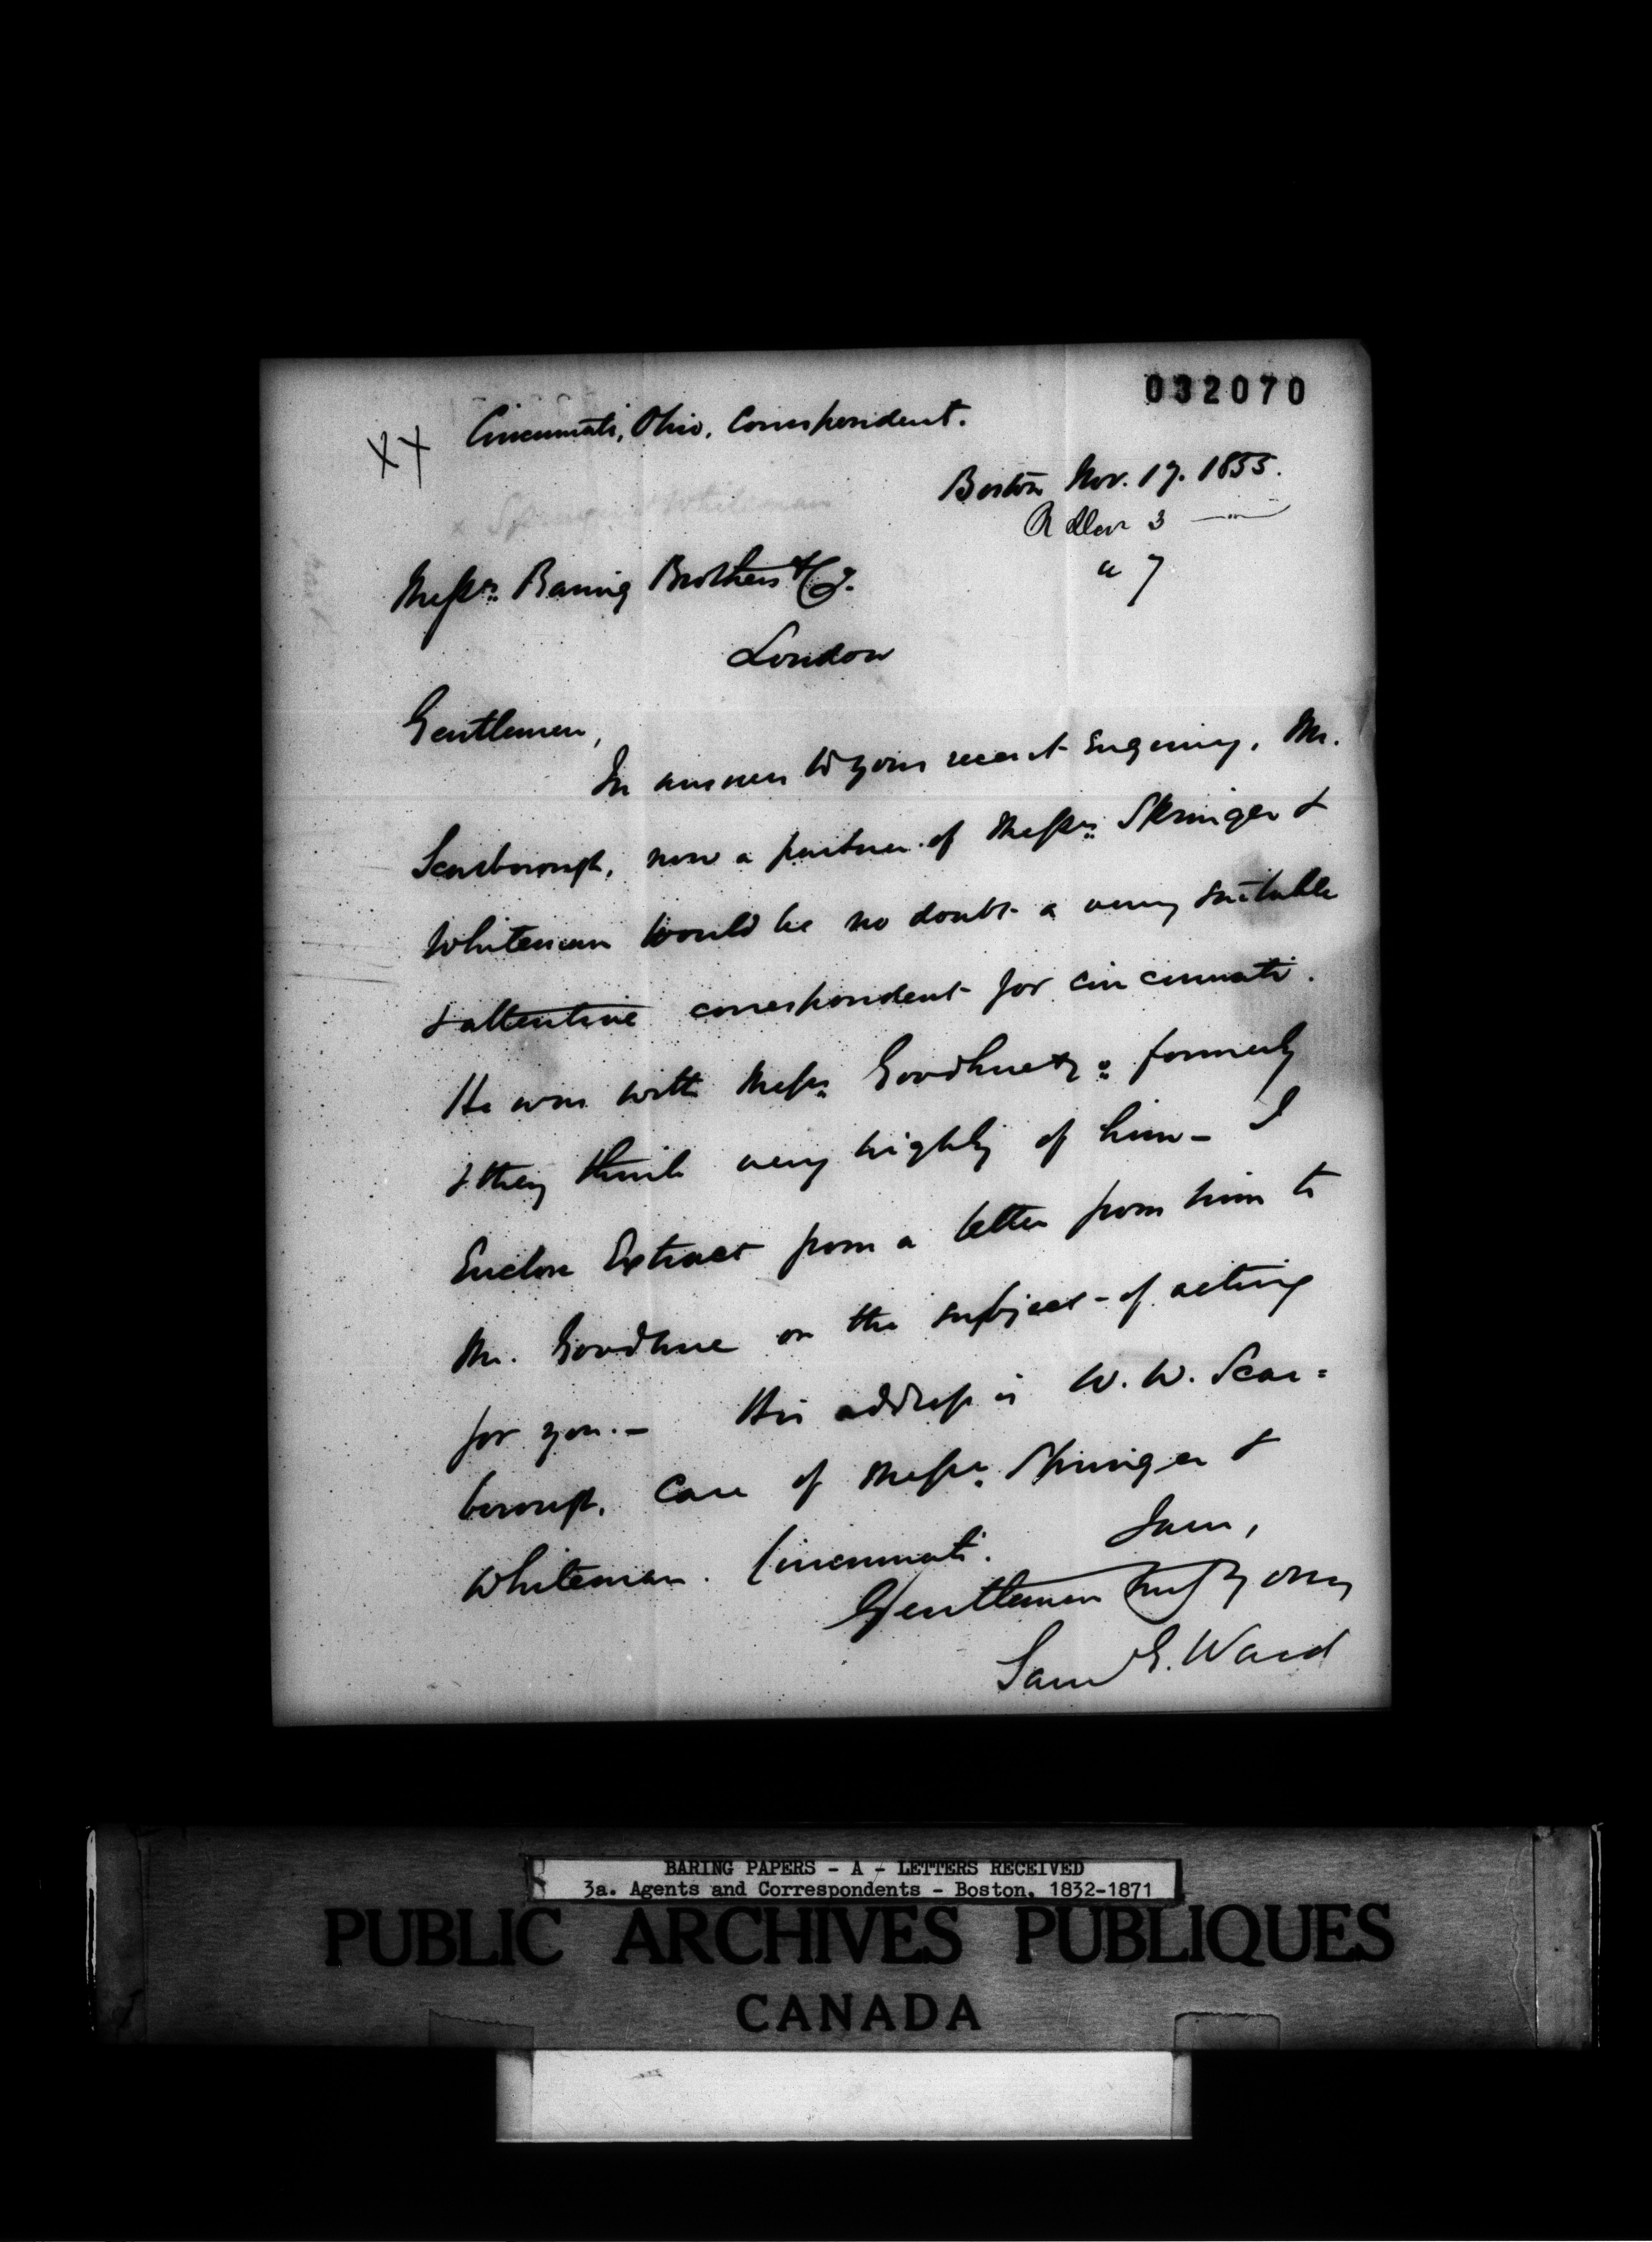 032070
XX Cincinnati, Ohio, Correspondent.
Boston Nov. 19. 1855.
R Dec 3
a 7
x Springer & Whiteman
Messrs. Baring Brothers & Co.
London
Gentlemen,
In answer to your recent Enquiry, Mr.
Scarborough, now a partner of Messrs. Springer &
Whiteman would be no doubt a very suitable
& attentive correspondent for Cincinnati.
He was with Messrs. Goodhue & Co. formerly
& they think very highly of him – I
Enclose Extract from a letter from him to
Mr. Goodhue on the subject of acting
for you. – His address is W. W. Scar=
borough, Care of Messrs. Springer &
Whiteman. Cincinnati. I am,
Gentlemen Truly Yours
Saml G. Ward
BARING PAPERS - A - LETTERS RECEIVED
3a. Agents and Correspondents - Boston, 1832-1871
PUBLIC ARCHIVES PUBLIQUES
CANADA